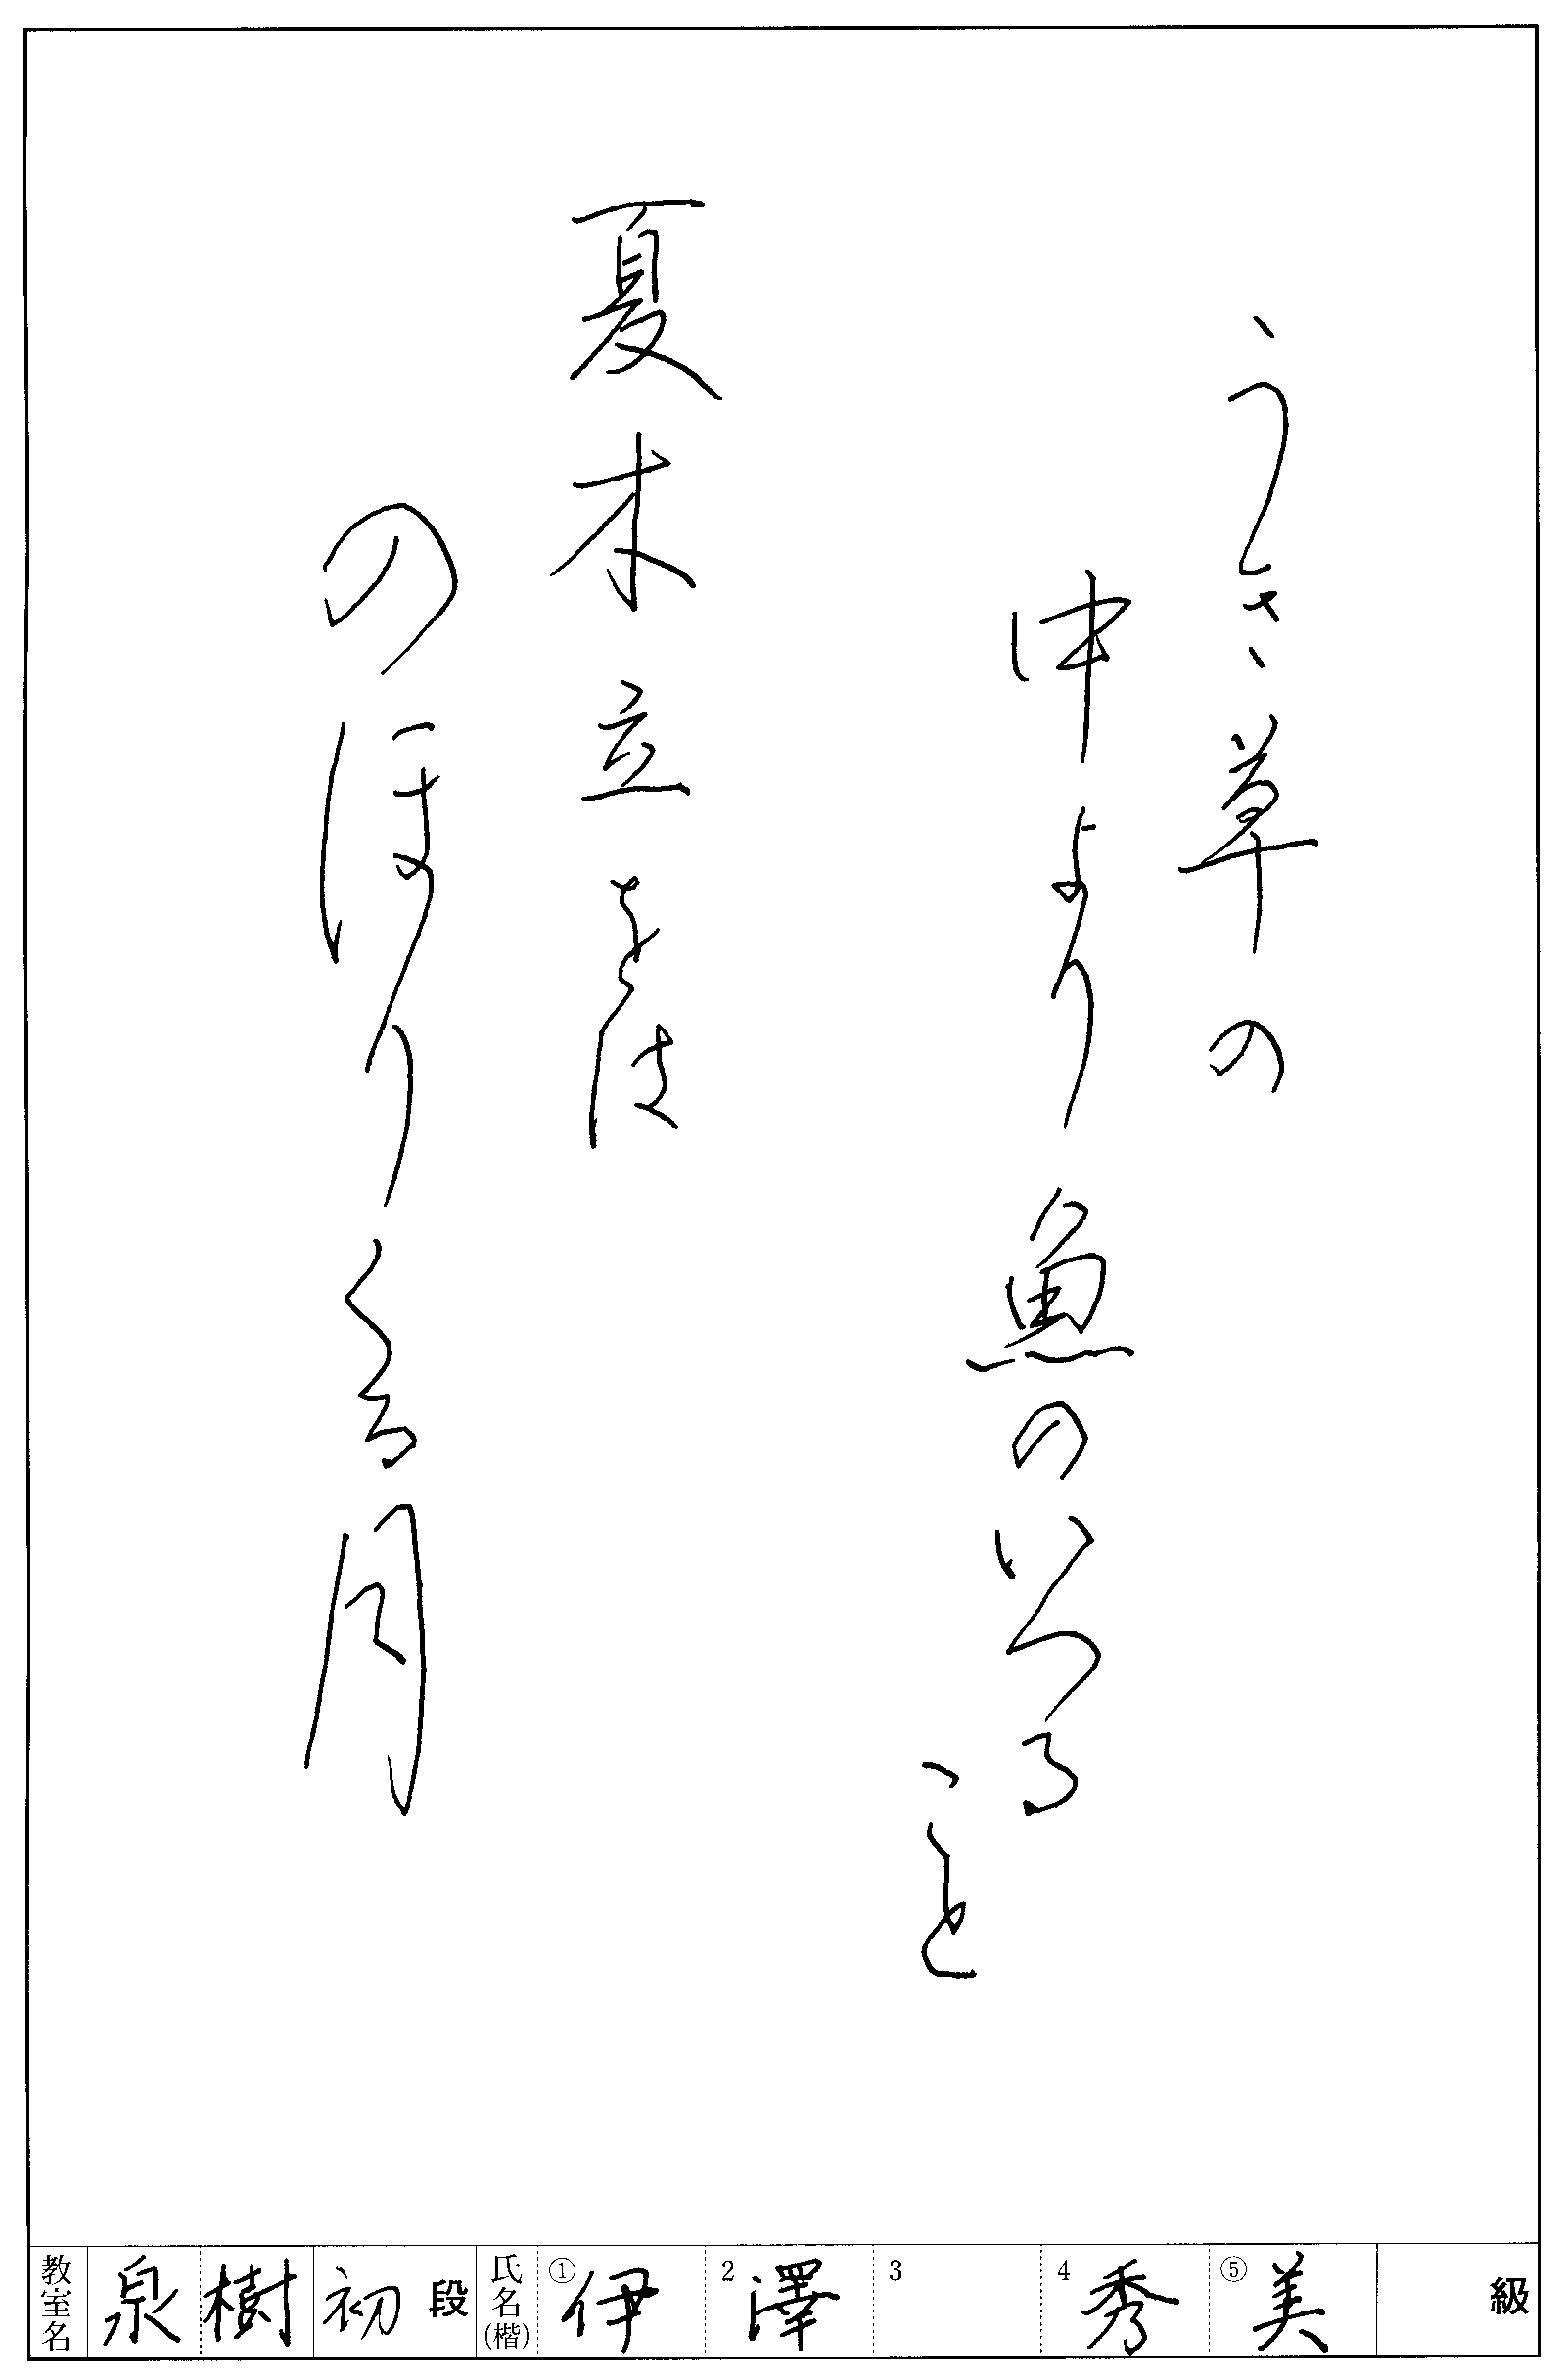 うき草の
中より魚のいつる
こと
夏木立をは
のほりくる月
教室名 泉樹 初段 氏名(楷) ①伊 2澤 3 4秀 ⑤美 級